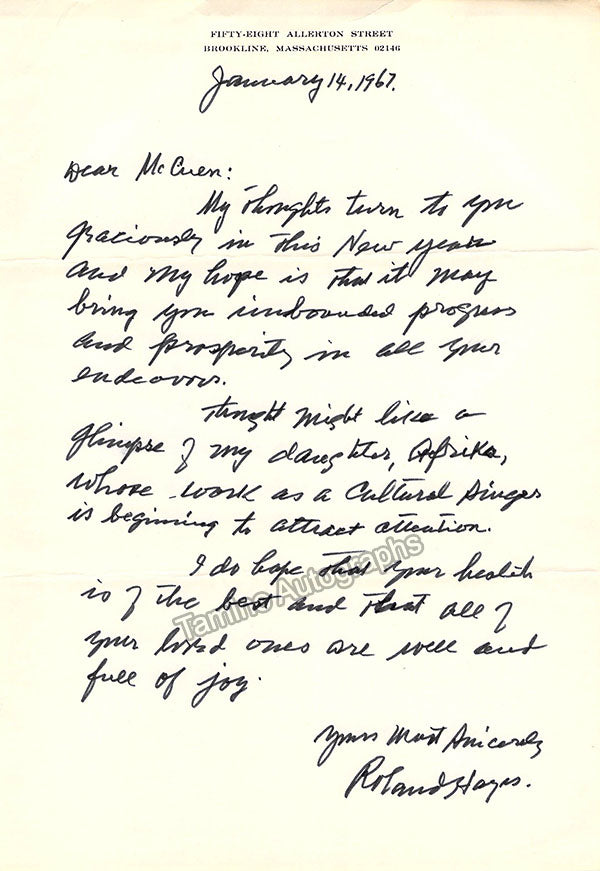 FIFTY-EIGHT ALLERTON STREET
BROOKLINE, MASSACHUSETTS 02146
January 14, 1967.
Dear McCuen:
My thoughts turn to you
graciously in this New year
and my hope is that it may
bring you unbounded progress
and prosperity in all your
endeavour.
Thought might like a
glimpse of my daughter, Afrika,
whose work as a Cultural Singer
is beginning to attract attention.
I do hope that your health
is of the best and that all of
your loved ones are well and
full of joy.
Yours Most Sincerely
Roland Hayes.
Tamino Autographs